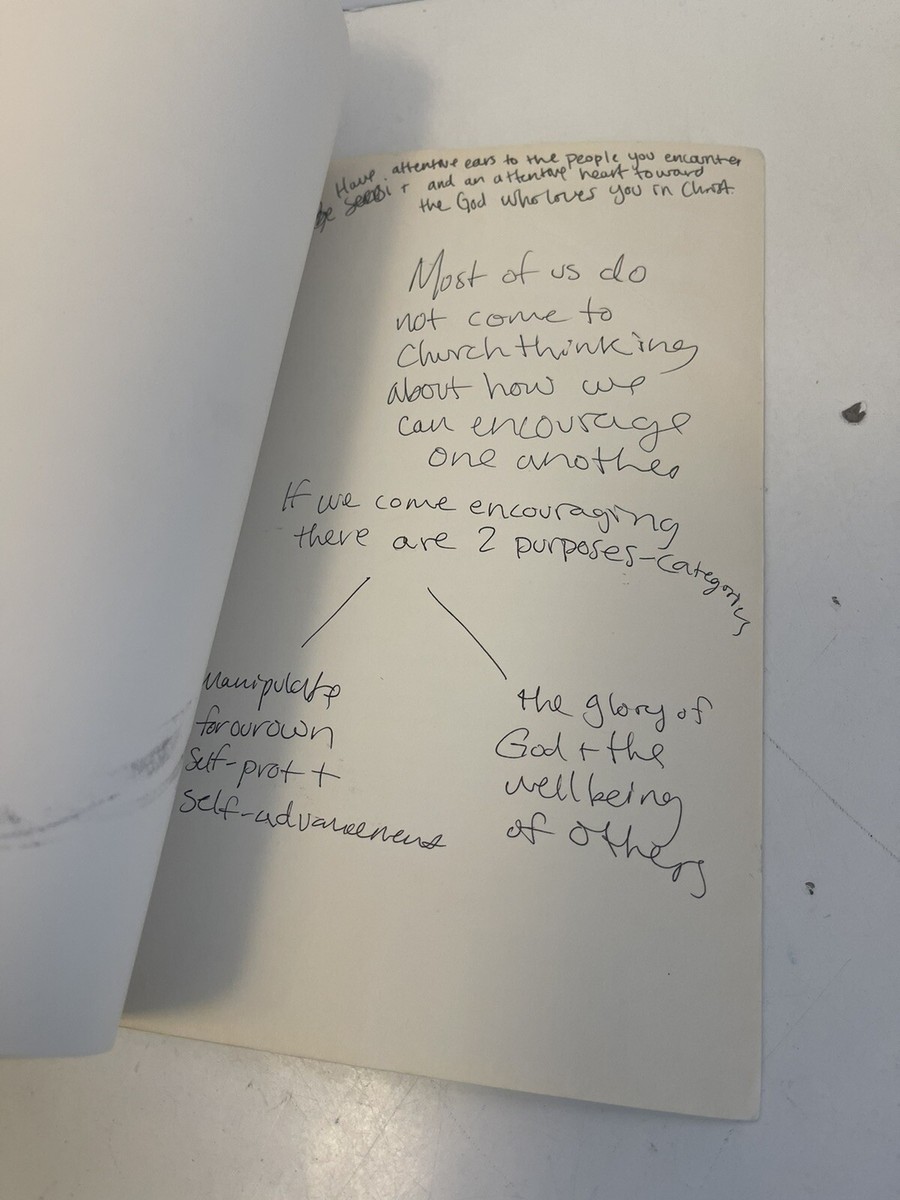 Have attentive ears to the people you encounter
Be and an attentive heart toward
the God who loves you in Christ.
Most of us do
not come to
Church thinking
about how we
can encourage
one another
If we come encouraging
there are 2 purposes-categories
Manipulate
for our own
Self-prot +
self-advancement
the glory of
God + the
wellbeing
of others